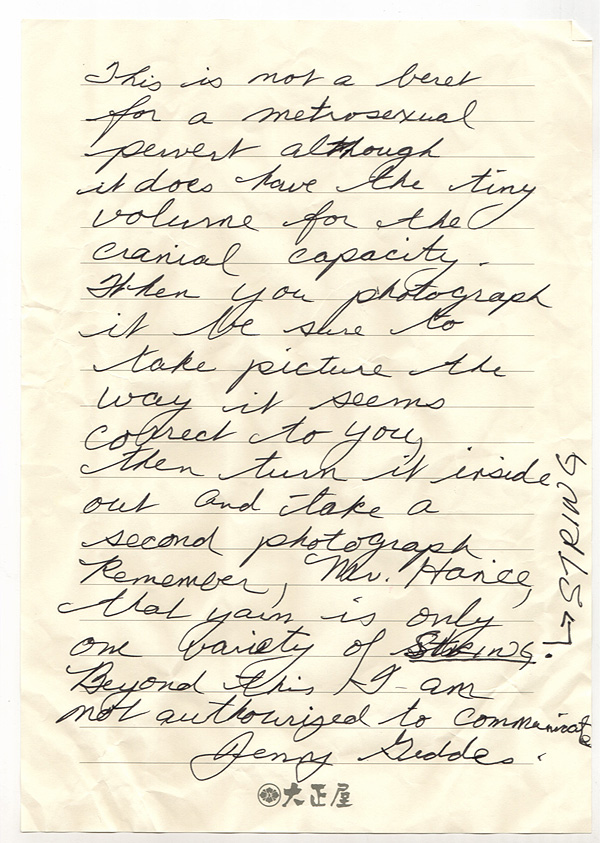 This is not a beret
for a metrosexual
pervert although
it does have the tiny
volume for the
cranial capacity.
When you photograph
it be sure to
take picture the
way it seems
correct to you,
then turn it inside
out and take a
second photograph
Remember, Mr. Harice,
that yarn is only
one variety of String.
Beyond this I am
not authourized to communicate
Jenny Geddes.
STRING
大正屋